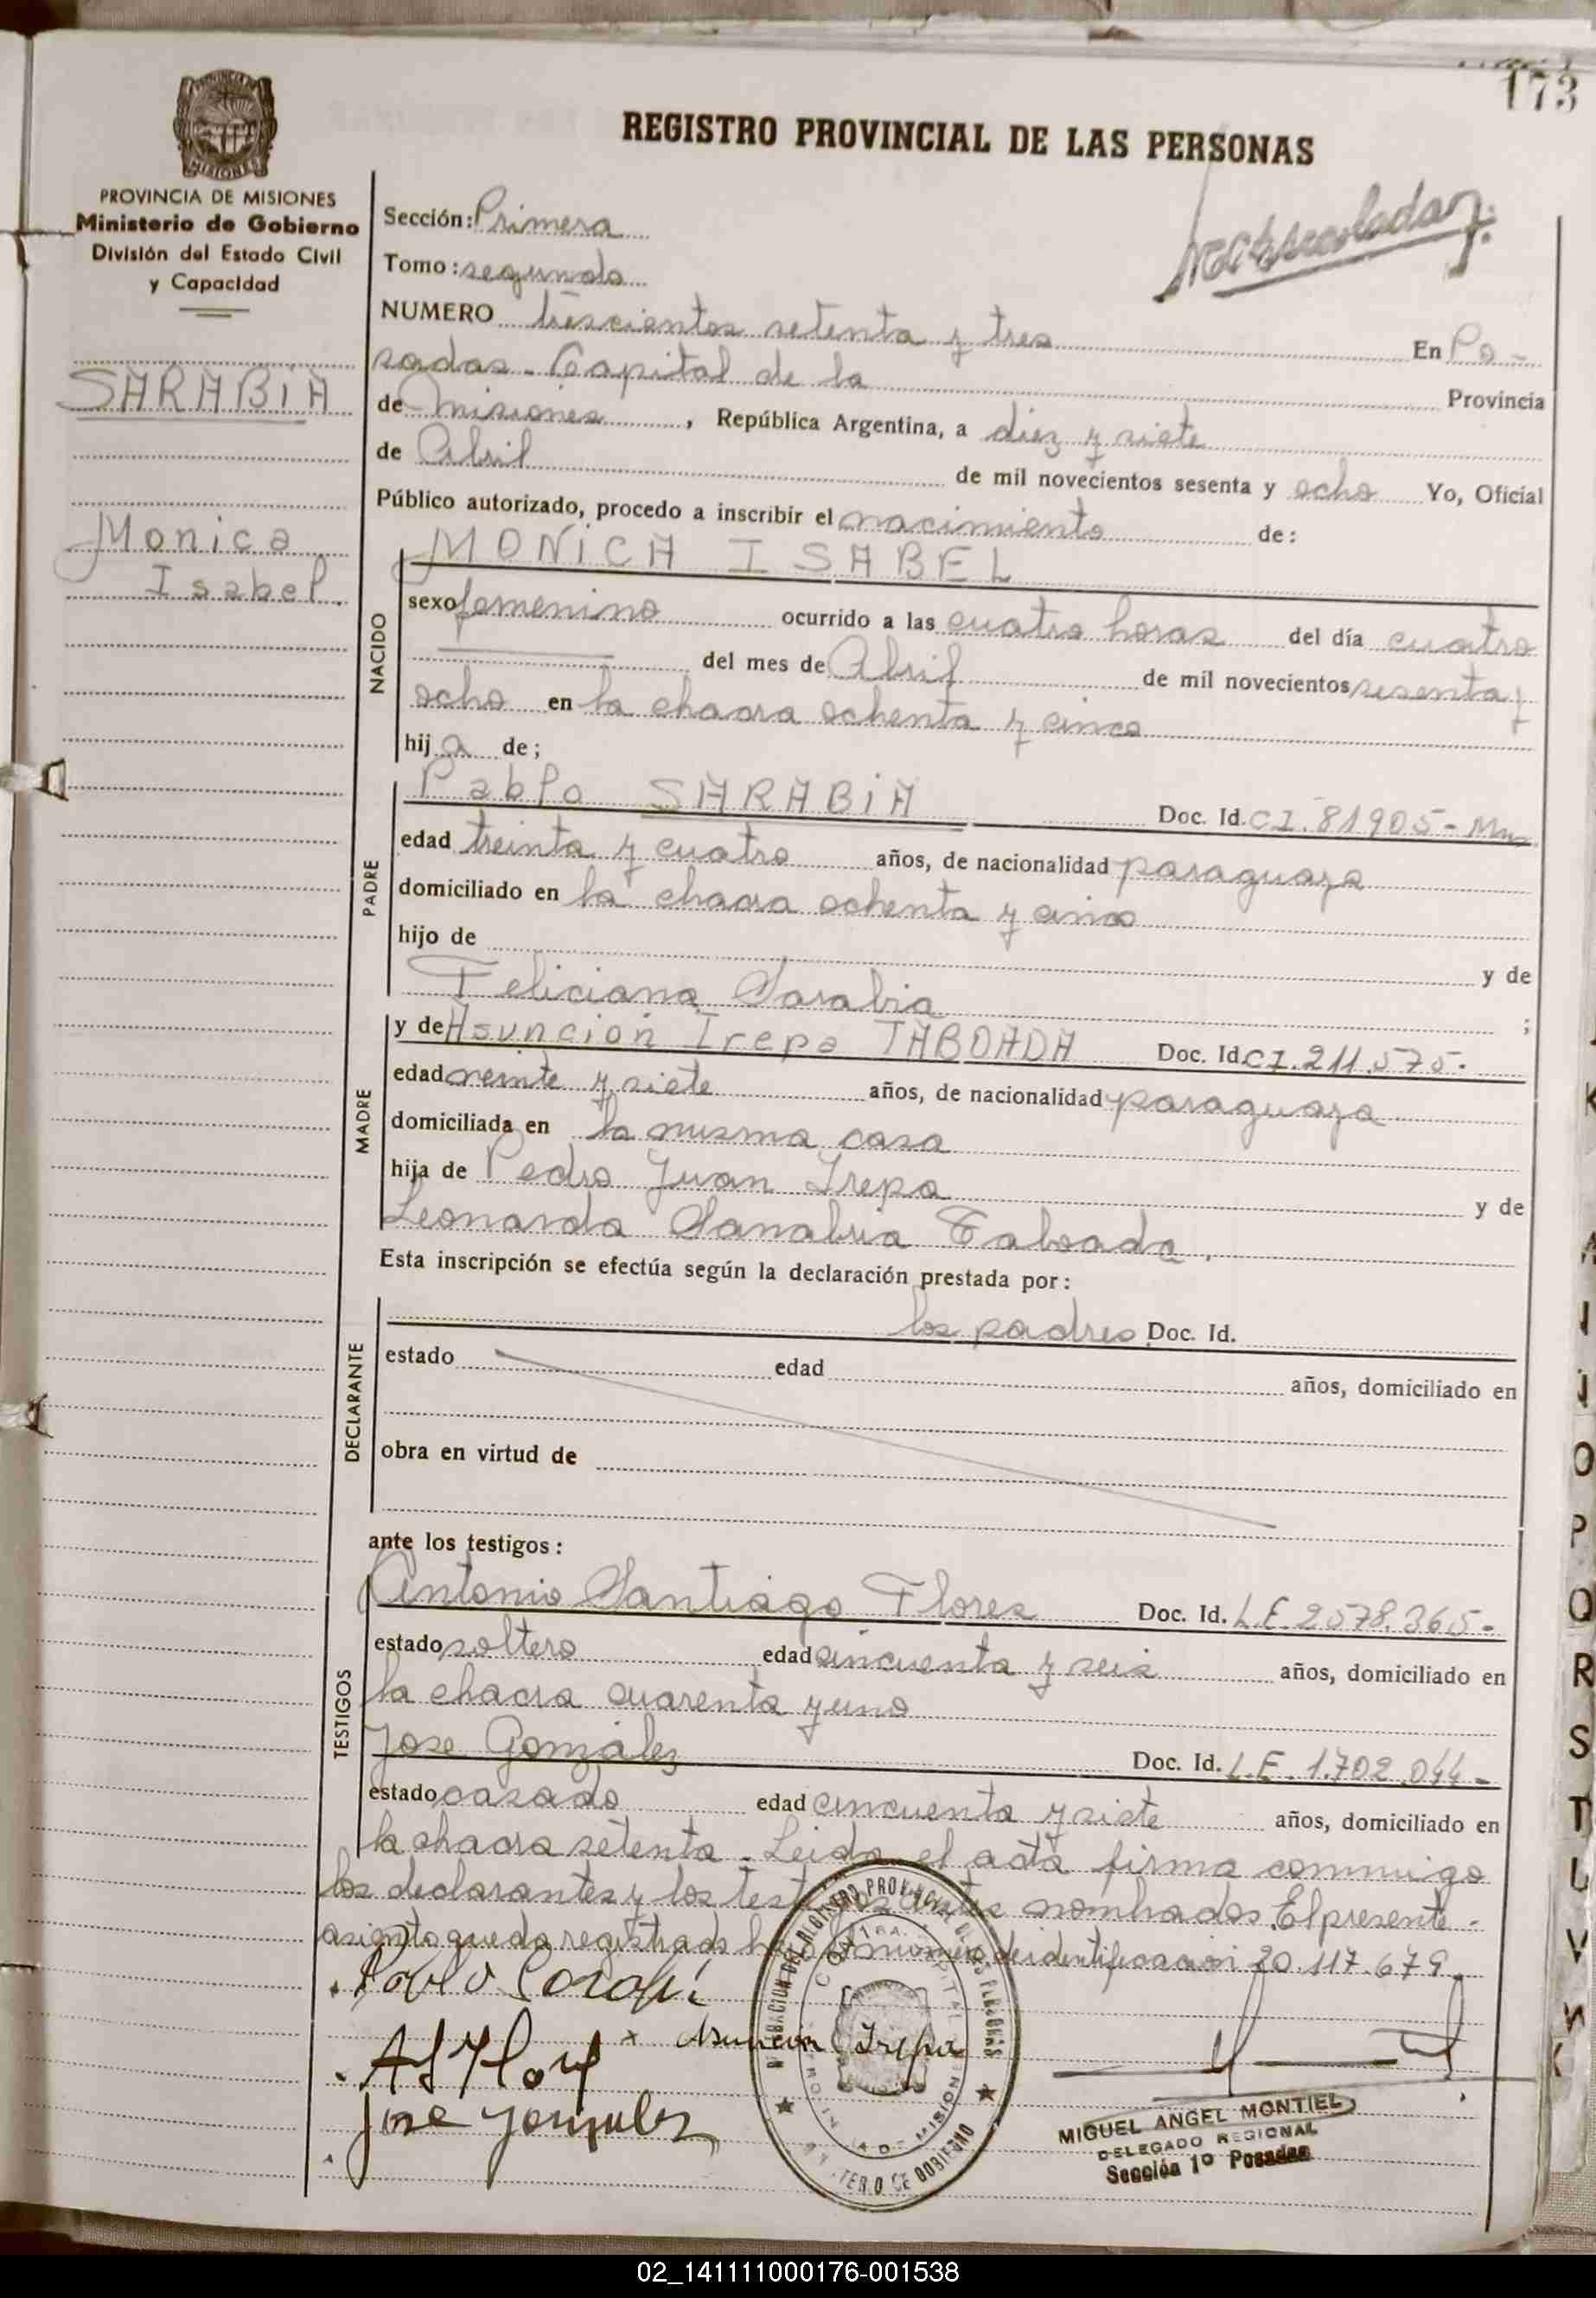 173
REGISTRO PROVINCIAL DE LAS PERSONAS
PROVINCIA DE MISIONES
Ministerio de Gobierno
División del Estado Civil
y Capacidad
SARABIA
Monica
Isabel.
Sección: Primera
Tomo: segundo
NUMERO trescientos setenta y tres En Po-
sadas - Capital de la Provincia
de Misiones, República Argentina, a diez y siete
de Abril de mil novecientos sesenta y ocho Yo, Oficial
Público autorizado, procedo a inscribir el nacimiento de:
NACIDO
MONICA ISABEL
sexo femenino ocurrido a las cuatro horas del día cuatro
del mes de Abril de mil novecientos sesenta y
ocho en la chacra ochenta y cinco
hija de;
PADRE
Pablo SARABIA Doc. Id. CI. 81905 - Mns
edad treinta y cuatro años, de nacionalidad paraguaya
domiciliado en la chacra ochenta y cinco
hijo de y de
Feliciana Sarabia ;
MADRE
y de Asuncion Irepa TABOADA Doc. Id. CI. 211.575.
edad veinte y siete años, de nacionalidad paraguaya
domiciliada en la misma casa
hija de Pedro Juan Irepa y de
Leonarda Sanabria Taboada.
Esta inscripción se efectúa según la declaración prestada por:
DECLARANTE
los padres Doc. Id.
estado edad años, domiciliado en
obra en virtud de
ante los testigos:
TESTIGOS
Antonio Santiago Flores Doc. Id. L.E. 2578.365-
estado soltero edad cincuenta y seis años, domiciliado en
la chacra cuarenta y uno
Jose González Doc. Id. L.E. 1.702.044-
estado casado edad cincuenta y siete años, domiciliado en
la chacra setenta - Leida el acta firma conmigo
los declarantes y los testigos antes nombrados. El presente
asiento queda registrado bajo el numero de identificacion 20.117.679.
Asuncion Irepa
Jose Gonzalez
MIGUEL ANGEL MONTIEL
DELEGADO REGIONAL
Sección 1º Posadas
K
I
J
O
P
Q
R
S
T
U
V
W
02_141111000176-001538